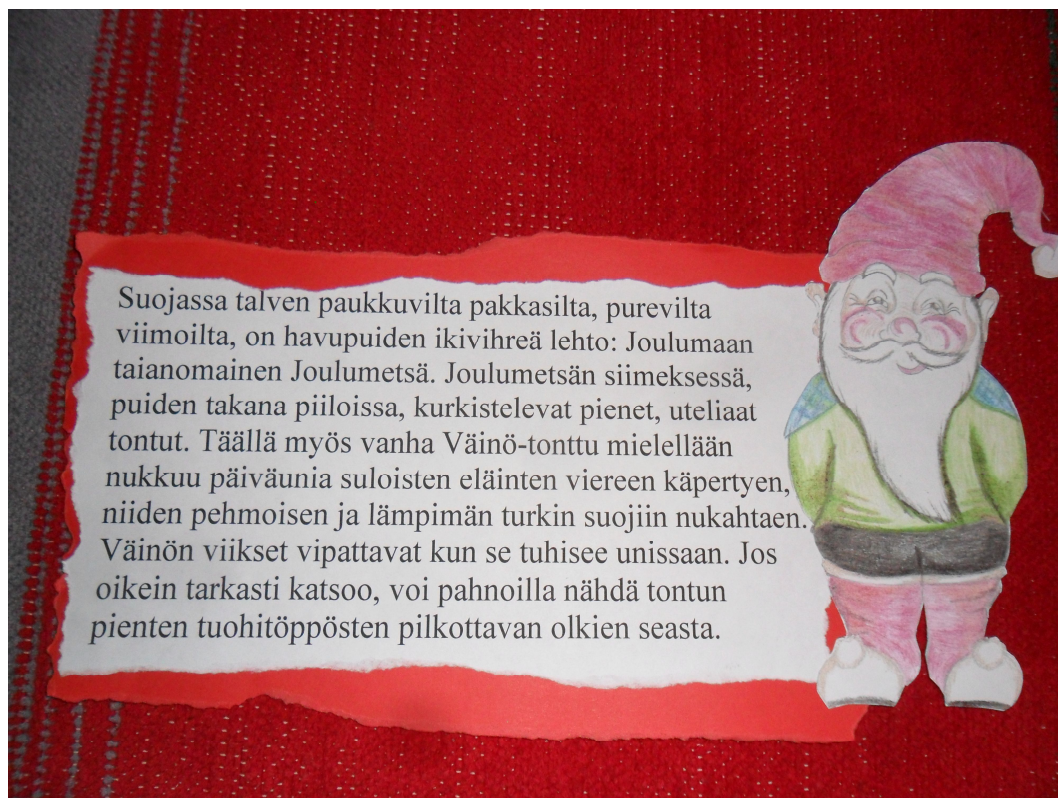 Suojassa talven paukkuvilta pakkasilta, purevilta
viimoilta, on havupuiden ikivihreä lehto: Joulumaan
taianomainen Joulumetsä. Joulumetsän siimeksessä,
puiden takana piiloissa, kurkistelevat pienet, uteliaat
tontut. Täällä myös vanha Väinö-tonttu mielellään
nukkuu päiväunia suloisten eläinten viereen käpertyen,
niiden pehmoisen ja lämpimän turkin suojiin nukahtaen.
Väinön viikset vipattavat kun se tuhisee unissaan. Jos
oikein tarkasti katsoo, voi pahnoilla nähdä tontun
pienten tuohitöppösten pilkottavan olkien seasta.